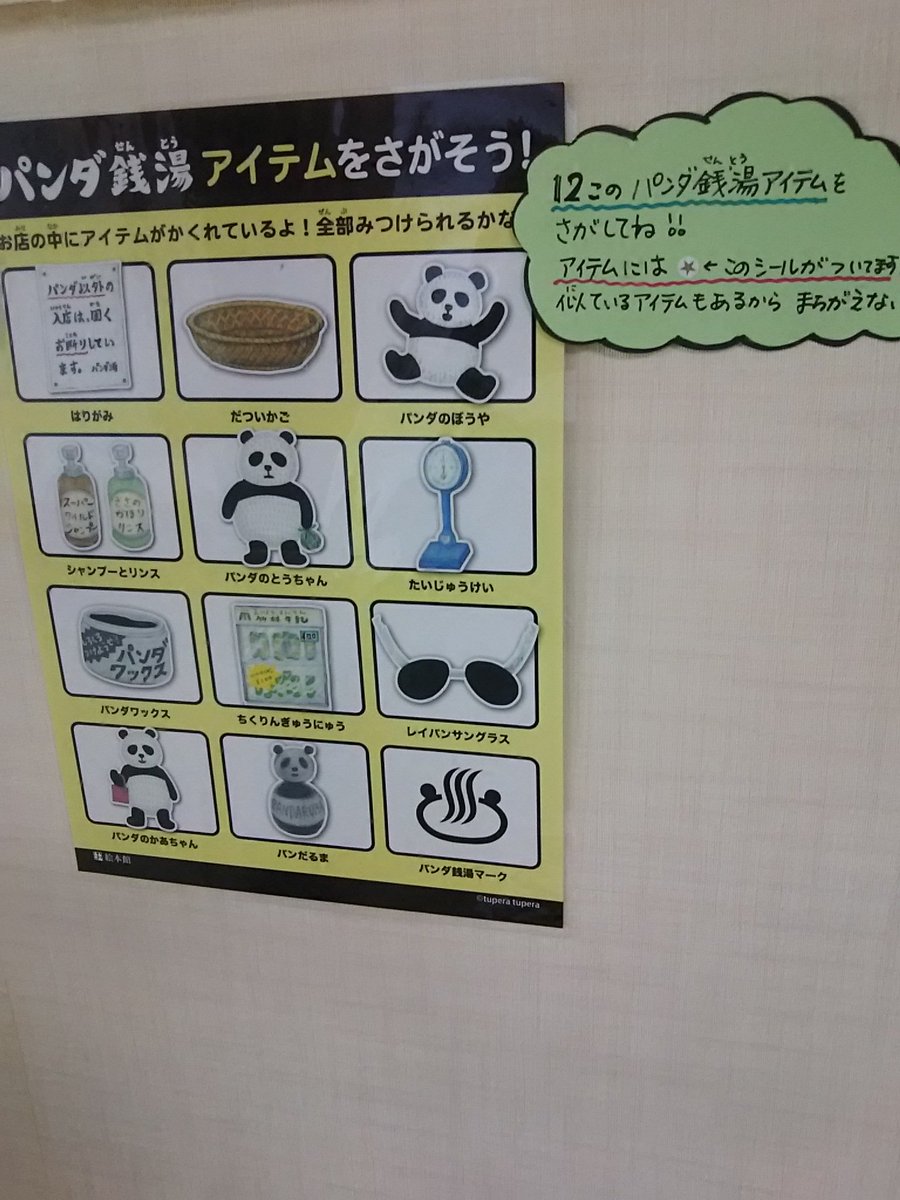 パンダ銭湯 アイテムをさがそう!
お店の中にアイテムがかくれているよ!全部みつけられるかな
パンダ以外の
入店は、固く
お断りしてい
ます。 パンダ湯
はりがみ
だついかご
パンダのぼうや
スーパー
ワイルド
シャンプー
ささの
かほり
リンス
シャンプーとリンス
パンダのとうちゃん
たいじゅうけい
パンダ
ワックス
パンダワックス
ちくりんぎゅうにゅう
レイバンサングラス
パンダのかあちゃん
PANDARUMA
パンだるま
パンダ銭湯マーク
絵本館
©tupera tupera
12この パンダ銭湯アイテムを
さがしてね!!
アイテムには ★←このシールがついてます
似ているアイテムもあるから まちがえない